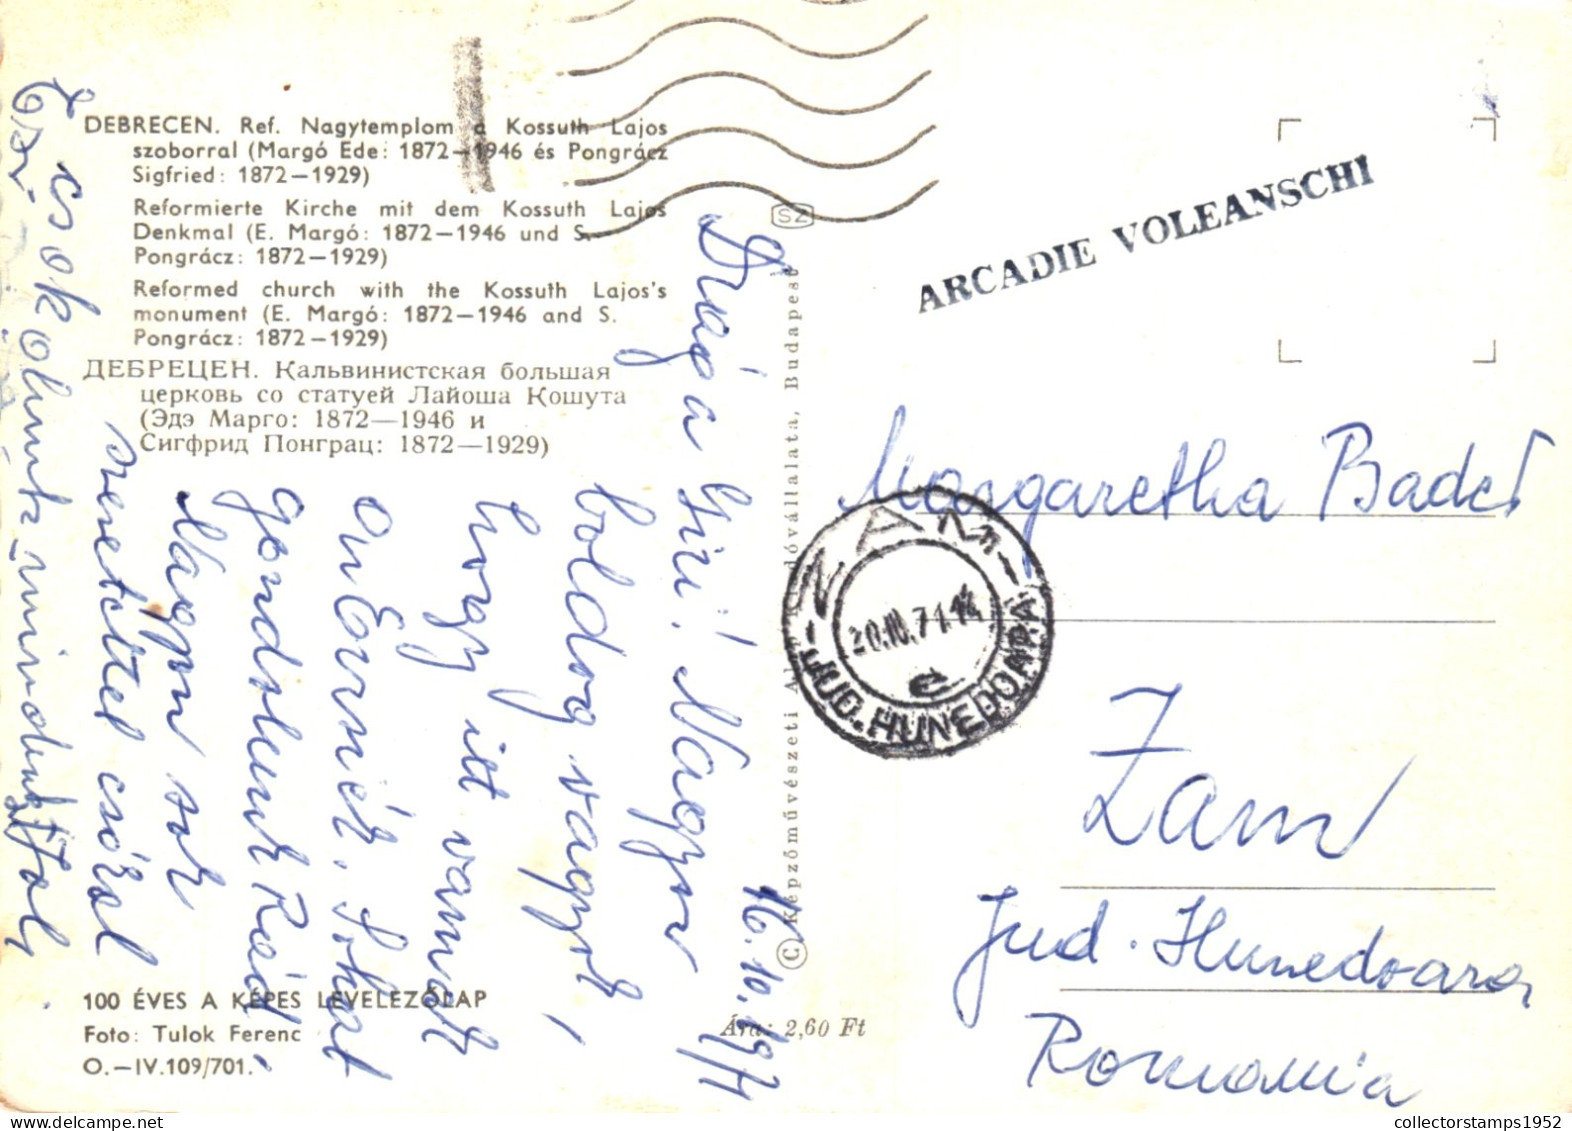 DEBRECEN. Ref. Nagytemplom a Kossuth Lajos
szoborral (Margó Ede: 1872—1946 és Pongrácz
Sigfried: 1872—1929)
Reformierte Kirche mit dem Kossuth Lajos
Denkmal (E. Margó: 1872—1946 und S.
Pongrácz: 1872—1929)
Reformed church with the Kossuth Lajos's
monument (E. Margó: 1872—1946 and S.
Pongrácz: 1872—1929)
ДЕБРЕЦЕН. Кальвинистская большая
церковь со статуей Лайоша Кошута
(Эдэ Марго: 1872—1946 и
Сигфрид Понграц: 1872—1929)
100 ÉVES A KÉPES LEVELEZŐLAP
Foto: Tulok Ferenc
O.—IV.109/701.
Drága Gizi! Nagyon
boldog vagyok,
hogy itt vannak
Sokat
gondolunk Reád,
Nagyon sok
szeretettel csókol
csokolunk mindnyájan
16.10.1971
SZ
© Képzőművészeti Alap Kiadóvállalata, Budapest
Ára: 2,60 Ft
ARCADIE VOLEANSCHI
ZAM
JUD. HUNEDOARA
Margaretha
Zam
Jud. Hunedoara
Romania
collectorstamps1952